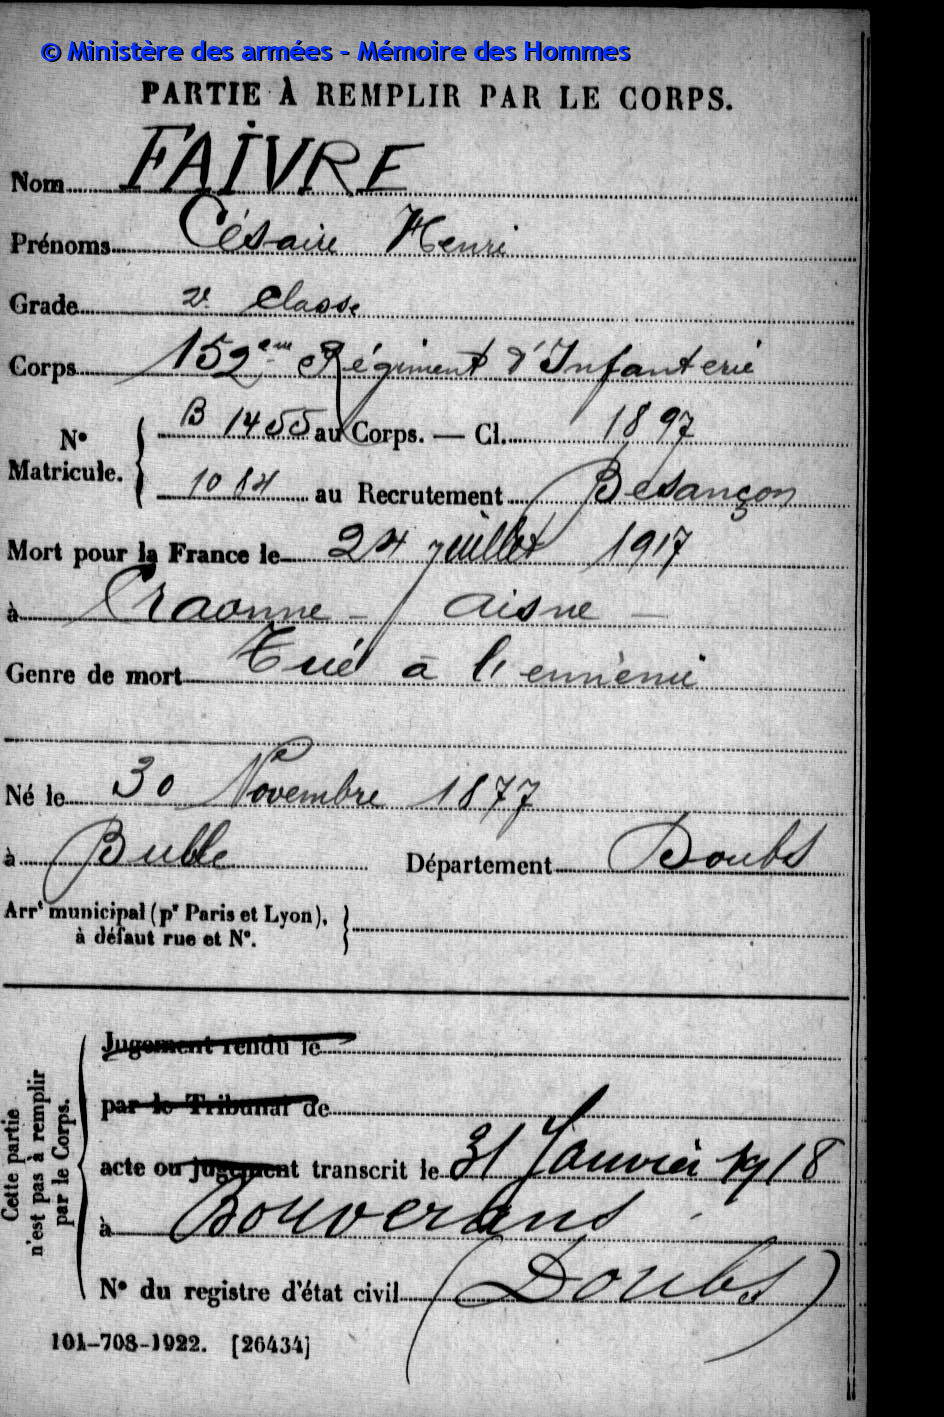 © Ministère des armées - Mémoire des Hommes
PARTIE À REMPLIR PAR LE CORPS.
Nom FAIVRE
Prénoms Césaire Henri
Grade 2e Classe
Corps 152ème Régiment d'Infanterie
N° Matricule. { B 1455 au Corps. — Cl. 1897
1084 au Recrutement Besançon
Mort pour la France le 24 juillet 1917
à Craonne - Aisne -
Genre de mort Tué à l'ennemi
Né le 30 Novembre 1877
à Bulle Département Doubs
Arrt municipal (pr Paris et Lyon),
à défaut rue et N°.
Cette partie
n'est pas à remplir
par le Corps.
Jugement rendu le
par le Tribunal de
acte ou jugement transcrit le 31 Janvier 1918
à Bouverans
N° du registre d'état civil (Doubs)
101-708-1922. [26434]